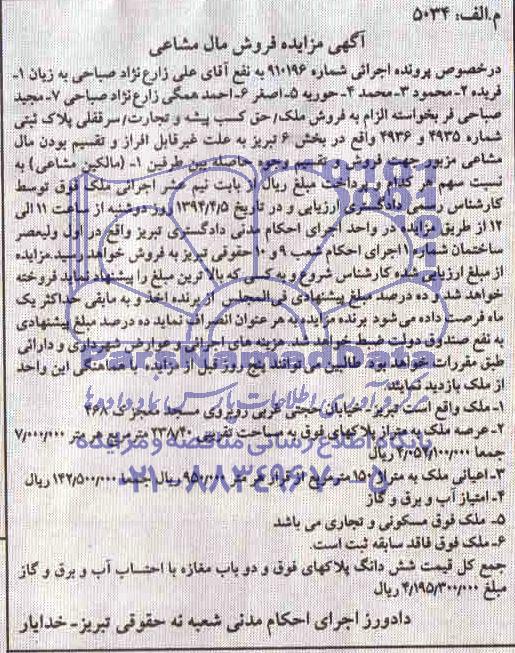 م.الف: ۵۰۳۴
آگهی مزایده فروش مال مشاعی
درخصوص پرونده اجرائی شماره ۹۱۰۱۹۶ به نفع آقای علی زارع‌نژاد صباحی به زیان ۱-
فریده ۲-محمود ۳-محمد ۴-حوریه ۵-اصغر ۶-احمد همگی زارع‌نژاد صباحی ۷-مجید
صباحی فر بخواسته الزام به فروش ملک/حق کسب پیشه و تجارت/سرقفلی پلاک ثبتی
شماره ۴۹۳۵ و ۴۹۳۶ واقع در بخش ۶ تبریز به علت غیرقابل افراز و تقسیم بودن مال
مشاعی مزبور جهت فروش و تقسیم وجوه حاصله بین طرفین ۱- (مالکین مشاعی) به
نسبت سهم هر کدام و پرداخت مبلغ ریال از بابت نیم عشر اجرائی ملک فوق توسط
کارشناس رسمی دادگستری ارزیابی و در تاریخ ۱۳۹۴/۴/۵ روز دوشنبه از ساعت ۱۱ الی
۱۲ از طریق مزایده در واحد اجرای احکام مدنی دادگستری تبریز واقع در اول ولیعصر
ساختمان شماره ۱ اجرای احکام شعب ۹ و ۱۰ حقوقی تبریز به فروش خواهد رسید.مزایده
از مبلغ ارزیابی شده کارشناس شروع و به کسی که بالاترین مبلغ را پیشنهاد نماید فروخته
خواهد شد و ده درصد مبلغ پیشنهادی فی‌المجلس از برنده اخذ و به مابقی حداکثر یک
ماه فرصت داده می‌شود برنده مزایده به هر عنوان انصراف نماید ده درصد مبلغ پیشنهادی
به نفع صندوق دولت ضبط خواهد شد. هزینه های اجرائی و عوارض شهرداری و دارائی
طبق مقررات خواهد بود. طالبین می‌توانند پنج روز قبل از مزایده با هماهنگی این واحد
از ملک بازدید نمایند.
۱-ملک واقع است تبریز- خیابان حجتی غربی روبروی مسجد معجزی ۴۶۸
۲-عرصه ملک به متراژ پلاکهای فوق به مساحت تقریبی ۲۳۸/۴۰ مترمربع هر متر ۷/۰۰۰/۰۰۰
جمعا ۴/۰۵۲/۱۰۰/۰۰۰ ریال
۳-اعیانی ملک به متراژ ۱۵۰ مترمربع از قرار هر متر ۹۵۰/۰۰۰ ریال جمعا ۱۴۲/۵۰۰/۰۰۰ ریال
۴-امتیاز آب و برق و گاز
۵- ملک فوق مسکونی و تجاری می باشد
۶-ملک فوق فاقد سابقه ثبت است.
جمع کل قیمت شش دانگ پلاکهای فوق و دو باب مغازه با احتساب آب و برق و گاز
مبلغ ۴/۱۹۵/۳۰۰/۰۰۰ ریال
دادورز اجرای احکام مدنی شعبه نه حقوقی تبریز-خدایار
ParsNamadData
پایگاه اطلاع رسانی مناقصه و مزایده
۰۲۱-۸۸۳۴۹۶۷۰-۵